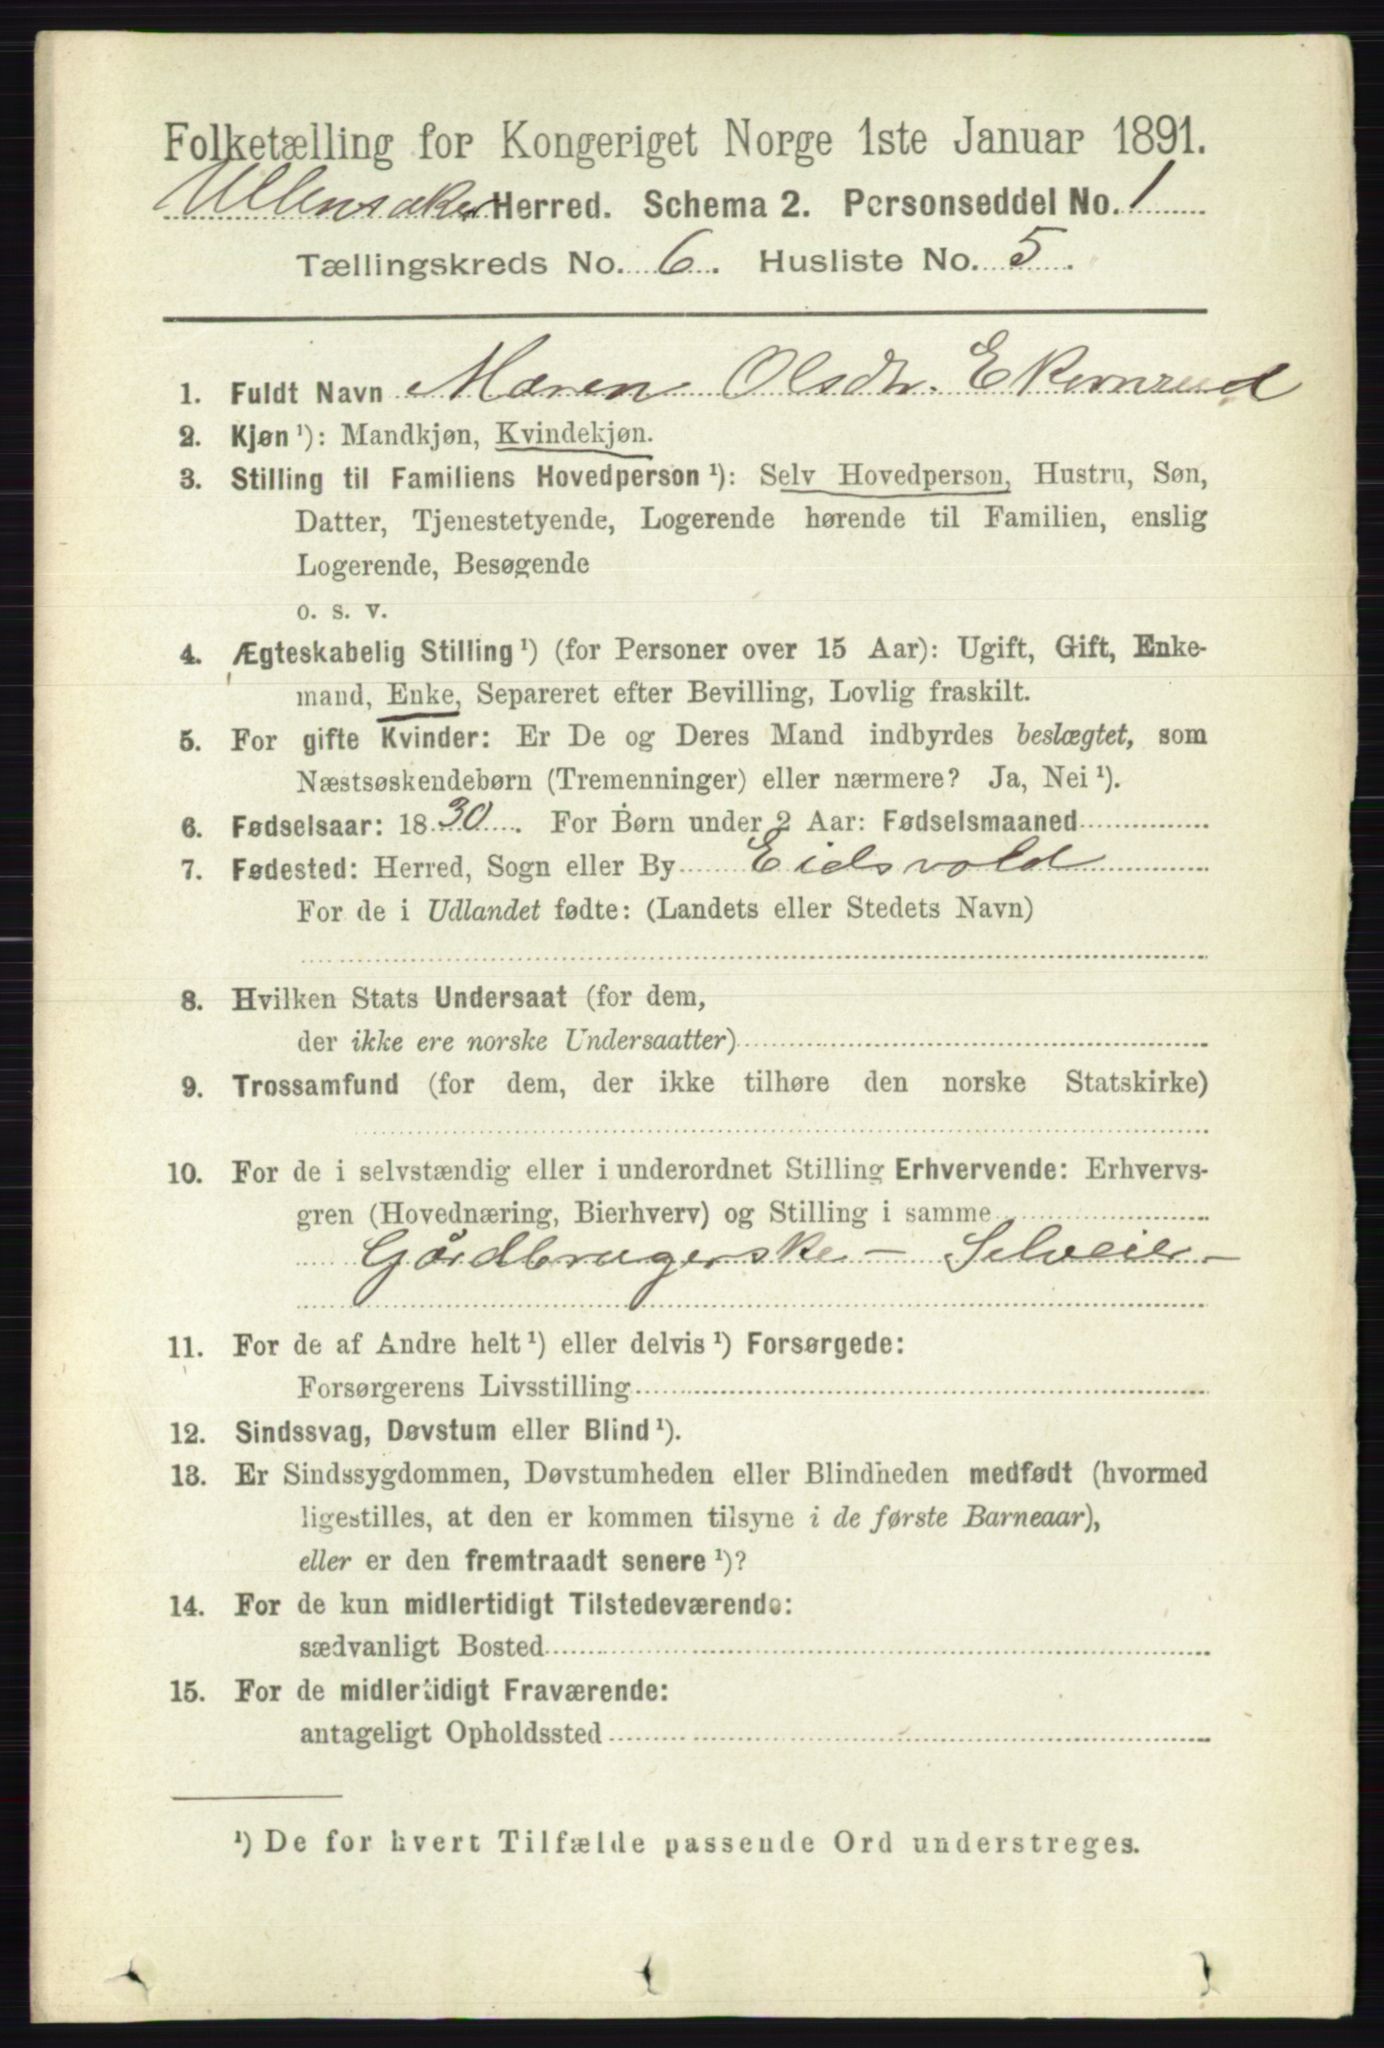 Folketælling for Kongeriget Norge 1ste Januar 1891.
Ullensaker Herred. Schema 2. Personseddel No. 1
Tællingskreds No. 6. Husliste No. 5.
1. Fuldt Navn Maren Olsdtr. Ekornrud
2. Kjøn ¹): Mandkjøn, Kvindekjøn.
3. Stilling til Familiens Hovedperson ¹): Selv Hovedperson, Hustru, Søn,
Datter, Tjenestetyende, Logerende hørende til Familien, enslig
Logerende, Besøgende
o. s. v.
4. Ægteskabelig Stilling ¹) (for Personer over 15 Aar): Ugift, Gift, Enke-
mand, Enke, Separeret efter Bevilling, Lovlig fraskilt.
5. For gifte Kvinder: Er De og Deres Mand indbyrdes beslægtet, som
Næstsøskendebørn (Tremenninger) eller nærmere? Ja, Nei ¹).
6. Fødselsaar: 1830. For Børn under 2 Aar: Fødselsmaaned
7. Fødested: Herred, Sogn eller By Eidsvold
For de i Udlandet fødte: (Landets eller Stedets Navn)
8. Hvilken Stats Undersaat (for dem,
der ikke ere norske Undersaatter)
9. Trossamfund (for dem, der ikke tilhøre den norske Statskirke)
10. For de i selvstændig eller i underordnet Stilling Erhvervende: Erhvervs-
gren (Hovednæring, Bierhverv) og Stilling i samme
Gårdbrugerske – Selveier –
11. For de af Andre helt ¹) eller delvis ¹) Forsørgede:
Forsørgerens Livsstilling
12. Sindssvag, Døvstum eller Blind ¹).
13. Er Sindssygdommen, Døvstumheden eller Blindheden medfødt (hvormed
ligestilles, at den er kommen tilsyne i de første Barneaar),
eller er den fremtraadt senere ¹)?
14. For de kun midlertidigt Tilstedeværende:
sædvanligt Bosted
15. For de midlertidigt Fraværende:
antageligt Opholdssted
¹) De for hvert Tilfælde passende Ord understreges.